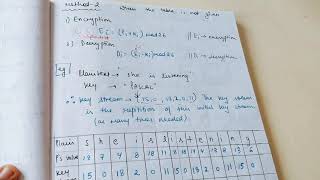 Method-2 when the table is not given
1) Encryption
Ei = (Pi + Ki) mod 26
2) Decryption
Di = (Ei - Ki) mod 26
Eg Plaintext → she is listening
Key → "PASCAL"
∴ key stream → (15, 0, 18, 2, 0, 11) The key stream
is the repitition of this initial key stream
(as many times needed)
Plain s h e i s l i s t e n i n g
P's value 18 7 4 8 18 11 8 18 19 4 13 8 13 6
Key 15 0 18 2 0 11 15 0 18 2 0 11 15 0